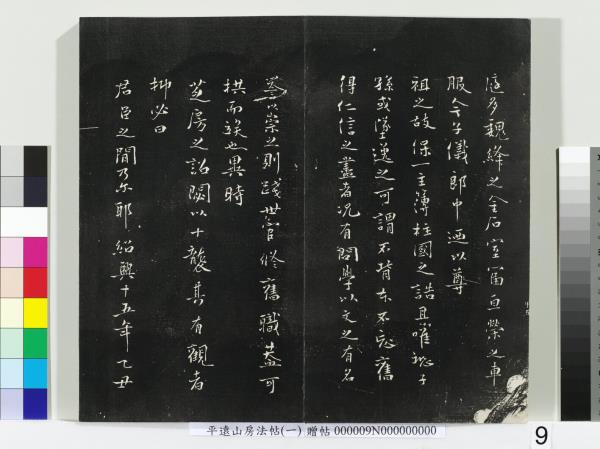 庭多魏絳之金石室富桓榮之車
服今子儀郎中迺以尊
祖之故保一主簿柱國之誥且嚁
孫或墜逸之可謂不背本不忘舊
得仁信之盡者況有問學以文之有名
譽以崇之則踐世官修舊職蓋可
拱而俟也異時
芝房之詔闕以十襲其有觀者
抑必曰
君臣之間乃尔耶紹興十五年乙丑
平遠山房法帖(一) 贈帖 000009N000000000
9